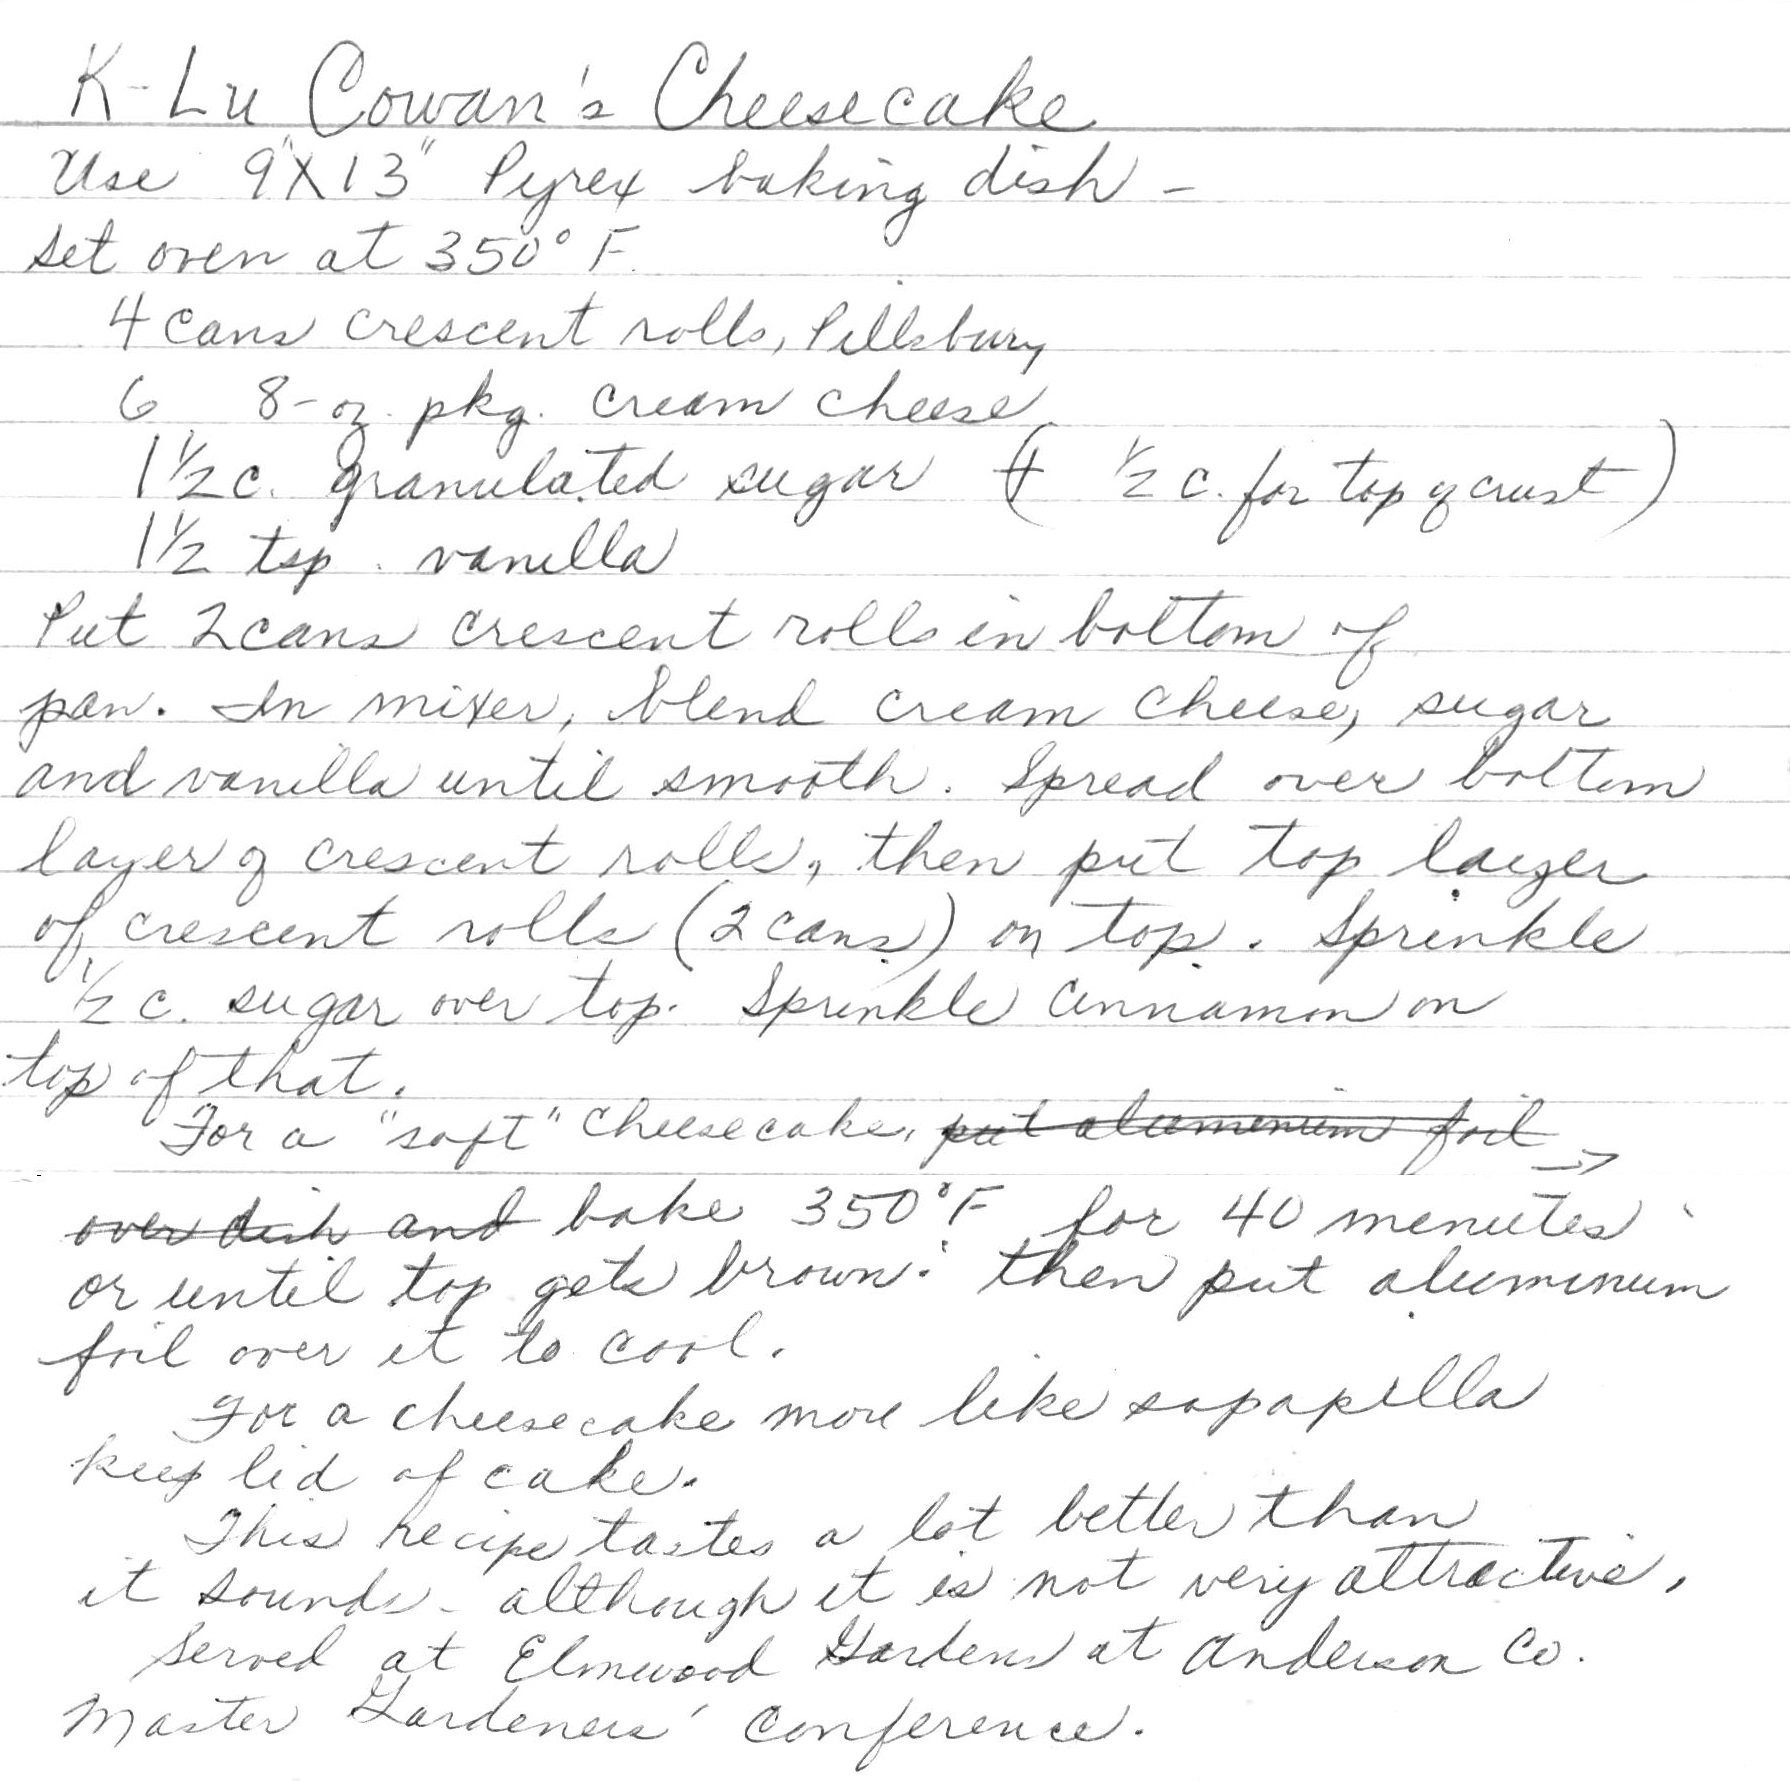 K-Lu Cowan's Cheesecake
Use 9"X13" Pyrex baking dish -
Set oven at 350° F.
4 cans crescent rolls, Pillsbury
6 8-oz. pkg. cream cheese
1 1/2 c. granulated sugar (+ 1/2 c. for top of crust)
1 1/2 tsp. vanilla
Put 2 cans crescent rolls in bottom of
pan. In mixer, blend cream cheese, sugar
and vanilla until smooth. Spread over bottom
layer of crescent rolls, then put top layer
of crescent rolls (2 cans) on top. Sprinkle
1/2 c. sugar over top. Sprinkle cinnamon on
top of that.
For a "soft" cheesecake, put aluminum foil →
over dish and bake 350°F for 40 minutes
or until top gets brown. Then put aluminum
foil over it to cool.
For a cheesecake more like sopapilla
keep lid of cake.
This recipe tastes a lot better than
it sounds - although it is not very attractive.
Served at Elmwood Gardens at Anderson Co.
Master Gardeners' Conference.